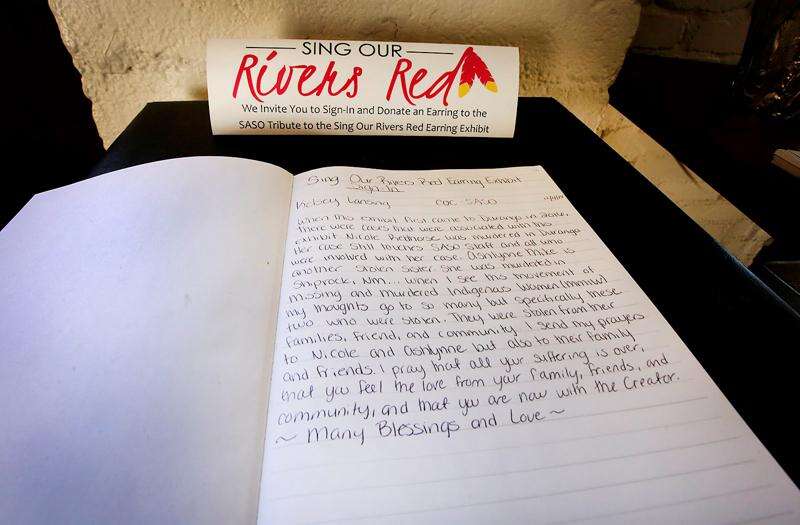 SING OUR
Rivers Red
We Invite You to Sign-In and Donate an Earring to the
SASO Tribute to the Sing Our Rivers Red Earring Exhibit
Sing Our Rivers Red Earring Exhibit
Sign In
Kelsey Lansing COC SASO
When this exhibit first came to Durango in
there were cases that were associated with this
exhibit. Nicole Redhorse was murdered in Durango
Her case still touches SASO staff and all who
were involved with her case. Ashlynne Mike is
another Stolen Sister. She was murdered in
Shiprock, NM... when I see this movement of
missing and murdered Indigenous Women (mmiw)
my thoughts go to so many but specifically these
two who were stolen. They were stolen from their
families, friend, and community. I send my prayers
to Nicole and Ashlynne but also to their family
and friends. I pray that all your suffering is over,
that you feel the love from your family, friends, and
community, and that you are now with the Creator.
~ Many Blessings and Love ~